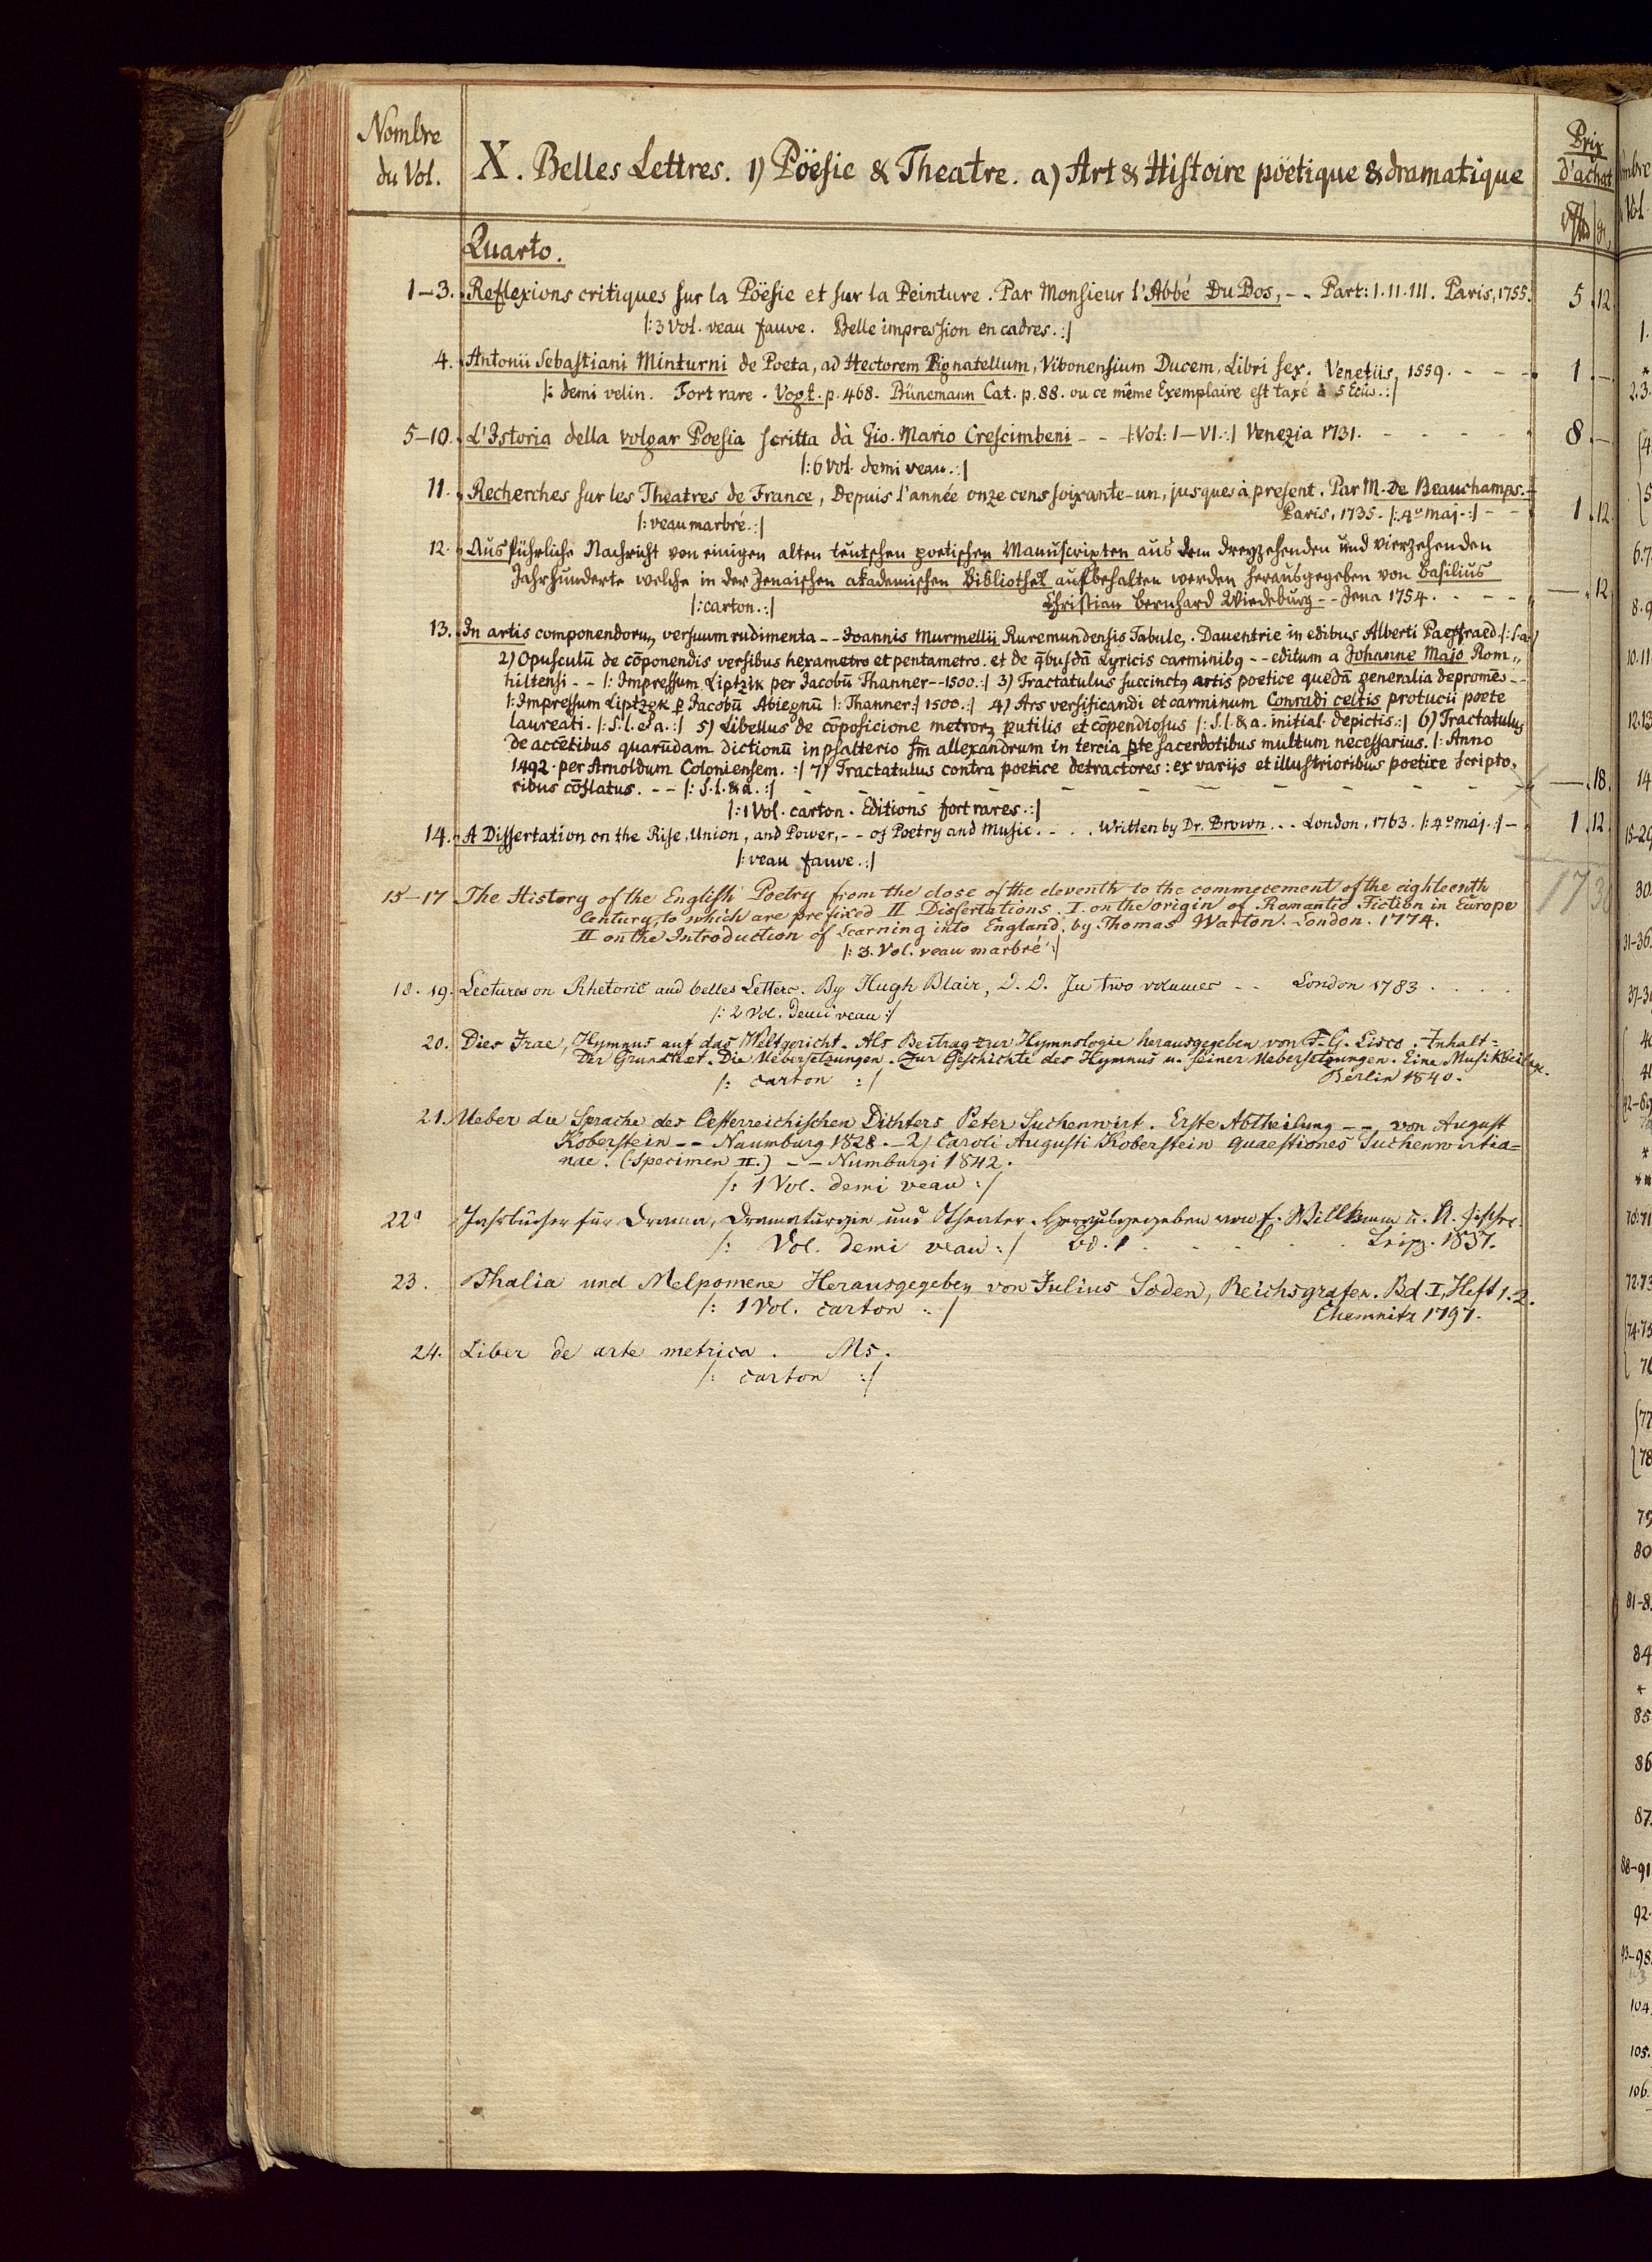 Nombre
du Vol.
X. Belles Lettres. 1) Pöësie & Theatre. a) Art & Histoire pöëtique & dramatique
Prix
d'achat
Quarto.
1–3. Reflexions critiques sur la Pöësie et sur la Peinture. Par Monsieur l'Abbé Du Bos, - - Part: I. II. III. Paris, 1755. 5 . 12
|: 3 Vol. veau fauve. Belle impression en cadres. :|
4. Antonii Sebastiani Minturni de Poeta, ad Hectorem Pignatellum, Vibonensium Ducem, Libri sex. Venetiis, 1559. - - - 1 . —
|: demi velin. Fort rare. Vogt. p. 468. Bünemann Cat. p. 88. ou ce même Exemplaire est taxé à 5 Ecûs. :|
5–10. L'Istoria della volgar Poesia scritta dà Gio. Mario Crescimbeni - - |: Vol: I–VI. :| Venezia 1731. - - - - - 8 . —
|: 6 Vol. demi veau. :|
11. Recherches sur les Theatres de France, Depuis l'année onze cens soixante-un, jusques à present. Par M. de Beauchamps. -
|: veau marbré. :| Paris, 1735. |: 4º maj. :| - - 1 . 12
12. Ausführliche Nachricht von einigen alten teutschen poetischen Manuscripten aus dem dreyzehenden und vierzehenden
Jahrhunderte welche in der Jenaischen akademischen Bibliothek aufbehalten werden herausgegeben von Basilius
|: carton. :| Christian Bernhard Wiedeburg - - Jena 1754. - - - — . 12
13. In artis componendorum versuum rudimenta - - Ioannis Murmellii Ruremundensis Tabule,. Dauentrie in edibus Alberti Paeffraed |: s. a. :|
2) Opusculū de cōponendis versibus hexametro et pentametro. et de q̄busdā Lyricis carminibꝯ - - editum a Johanne Majo Rom„
hiltensi - - |: Impressum Liptzik per Jacobū Thanner - - 1500. :| 3) Tractatulus succinctꝯ artis poetice quedā generalia depromēs - -
|: Impressum Liptzgk ꝑ Jacobū Abiegnū |: Thanner :| 1500. :| 4) Ars versificandi et carminum Conradi celtis protucii poete
laureati. |: S. l. & a. :| 5) Libellus de cōposicione metrorꝫ putilis et cōpendiosus |: S. l. & a. initial. depictis. :| 6) Tractatulus
de accētibus quarūdam dictionū in psalterio sm̄ allexandrum in tercia ꝑte sacerdotibus multum necessarius. |: Anno
1492. per Arnoldum Coloniensem. :| 7) Tractatulus contra poetice detractores: ex varijs et illustrioribus poetice scripto„
ribus cōflatus. - - |: S. l. & a. :| - - - - - - - — . 18.
|: 1 Vol. carton. Editions fort rares. :|
14. A Dissertation on the Rise, Union, and Power, - - of Poetry and Music. - . . Written by Dr. Brown . . . London, 1763. |: 4º maj. :| - 1 . 12.
|: veau fauve. :|
15–17 The History of the English Poetry from the close of the eleventh to the commecement of the eighteenth
Century, to which are prefixed II Dissertations. I. on the origin of Romantic Fiction in Europe
II on the Introduction of Learning into England. by Thomas Warton. London. 1774.
|: 3. Vol. veau marbré :|
18. 19. Lectures on Rhetoric and belles Letters. By Hugh Blair, D. D. In two volumes - - London 1783 . . . .
|: 2 Vol. demi veau :|
20. Dies Irae, Hymnus auf das Weltgericht. Als Beitrag zur Hymnologie herausgegeben von F. G. Lisco. Inhalt =
Der Grundtext. Die Uebersetzungen. Zur Geschichte des Hymnus u. seiner Uebersetzungen. Eine Musikbeilage.
|: carton :| Berlin 1840.
21. Ueber die Sprache des Oesterreichischen Dichters Peter Suchenwirt. Erste Abtheilung - - von August
Koberstein - - Naumburg 1828. - 2) Caroli Augusti Koberstein quaestiones Suchenwirtia=
nae. (Specimen II.) - - Numburgi 1842.
|: 1 Vol. demi veau :|
22ª Jahrbücher für Drama, Dramaturgie und Theater. Herausgegeben von E. Willkomm u. A. Fischer.
|: Vol. demi veau :| Bd. 1 . . . . . Leipz. 1837.
23. Thalia und Melpomene Herausgegeben von Julius Soden, Reichsgrafen. Bd I, Heft 1. 2.
|: 1 Vol. carton :| Chemnitz 1797.
24. Liber de arte metrica. Ms.
|: carton :|